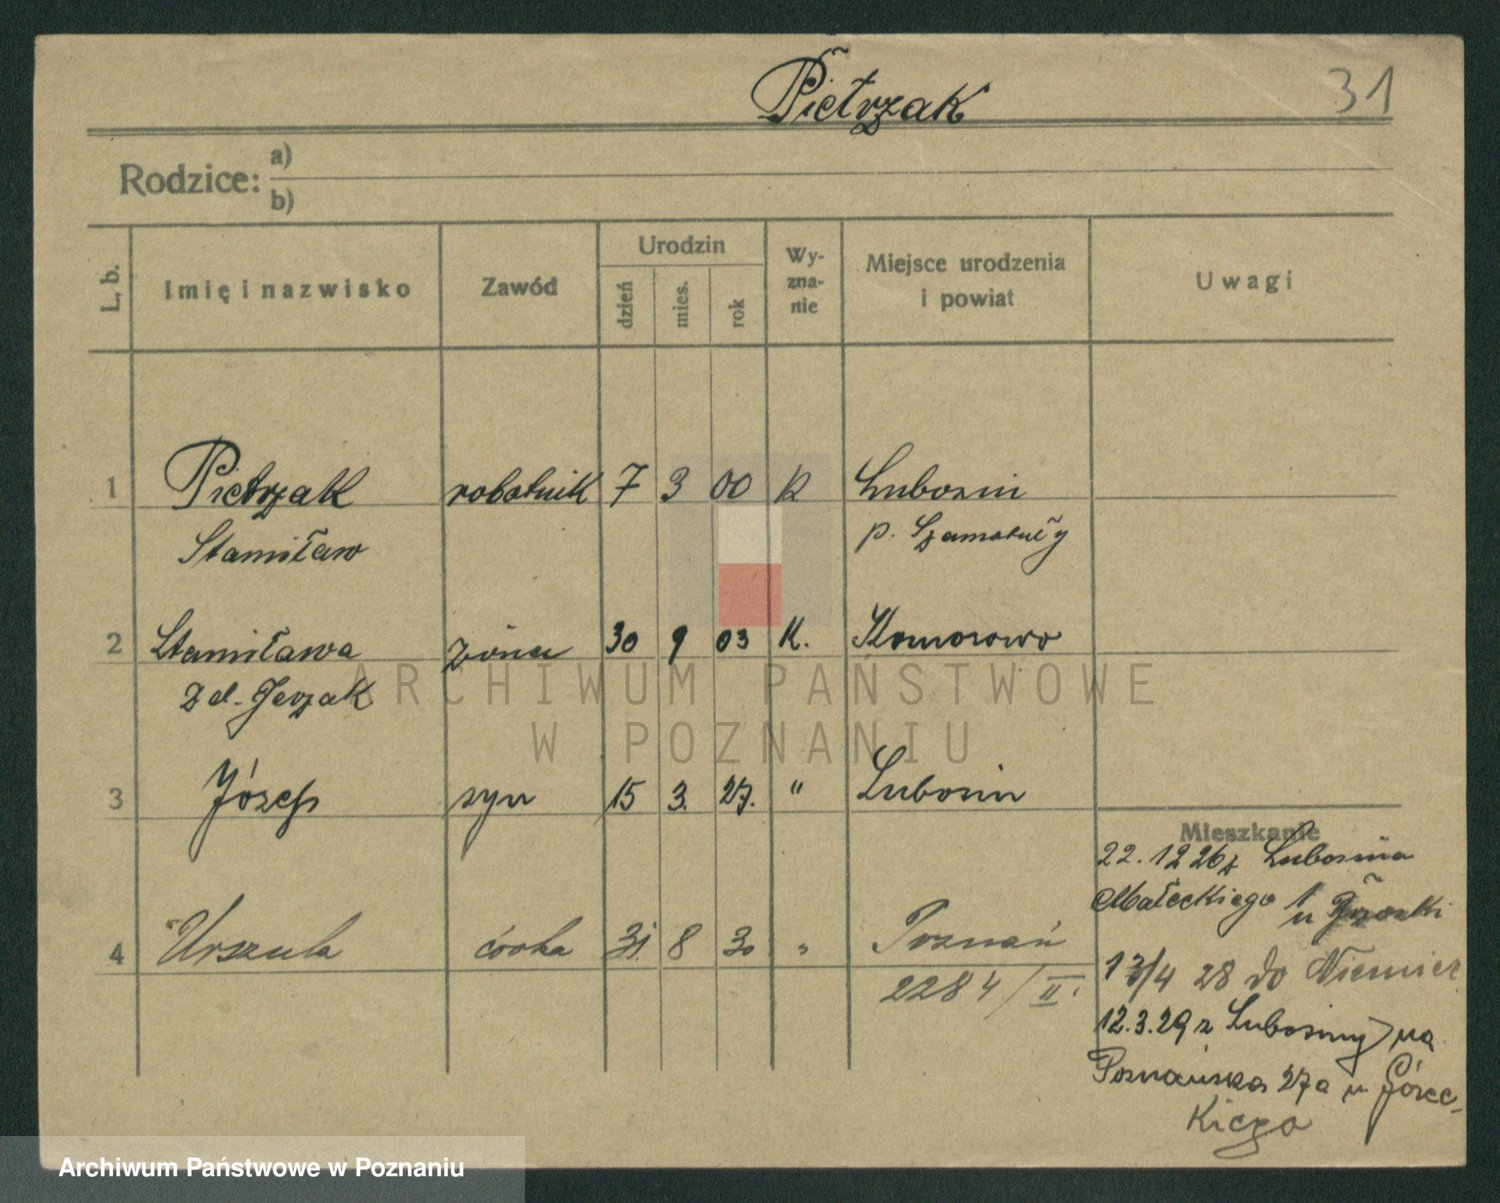 Pietrzak
31
Rodzice: a)
b)
L. b.
Imię i nazwisko
Zawód
Urodzin
dzień
mies.
rok
Wy-
zna-
nie
Miejsce urodzenia
i powiat
Uwagi
1 Pietrzak robotnik 7 3 00 K Lubosin
Stanisław p. Szamotuły
2 Stanisława żona 30 9 03 K. Komorowo
zd. Jerzak
3 Józef syn 15 3. 27. " Lubosin
4 Urszula córka 31. 8 30 " Poznań
2284/II.
Mieszkanie
22. 12 26 z Lubosina
Małeckiego 1
u
13/4 28 do Niemiec
12.3.29 z Lubosiny na
Poznańska 27a u Górec-
kiego
ARCHIWUM PAŃSTWOWE
W POZNANIU
Archiwum Państwowe w Poznaniu